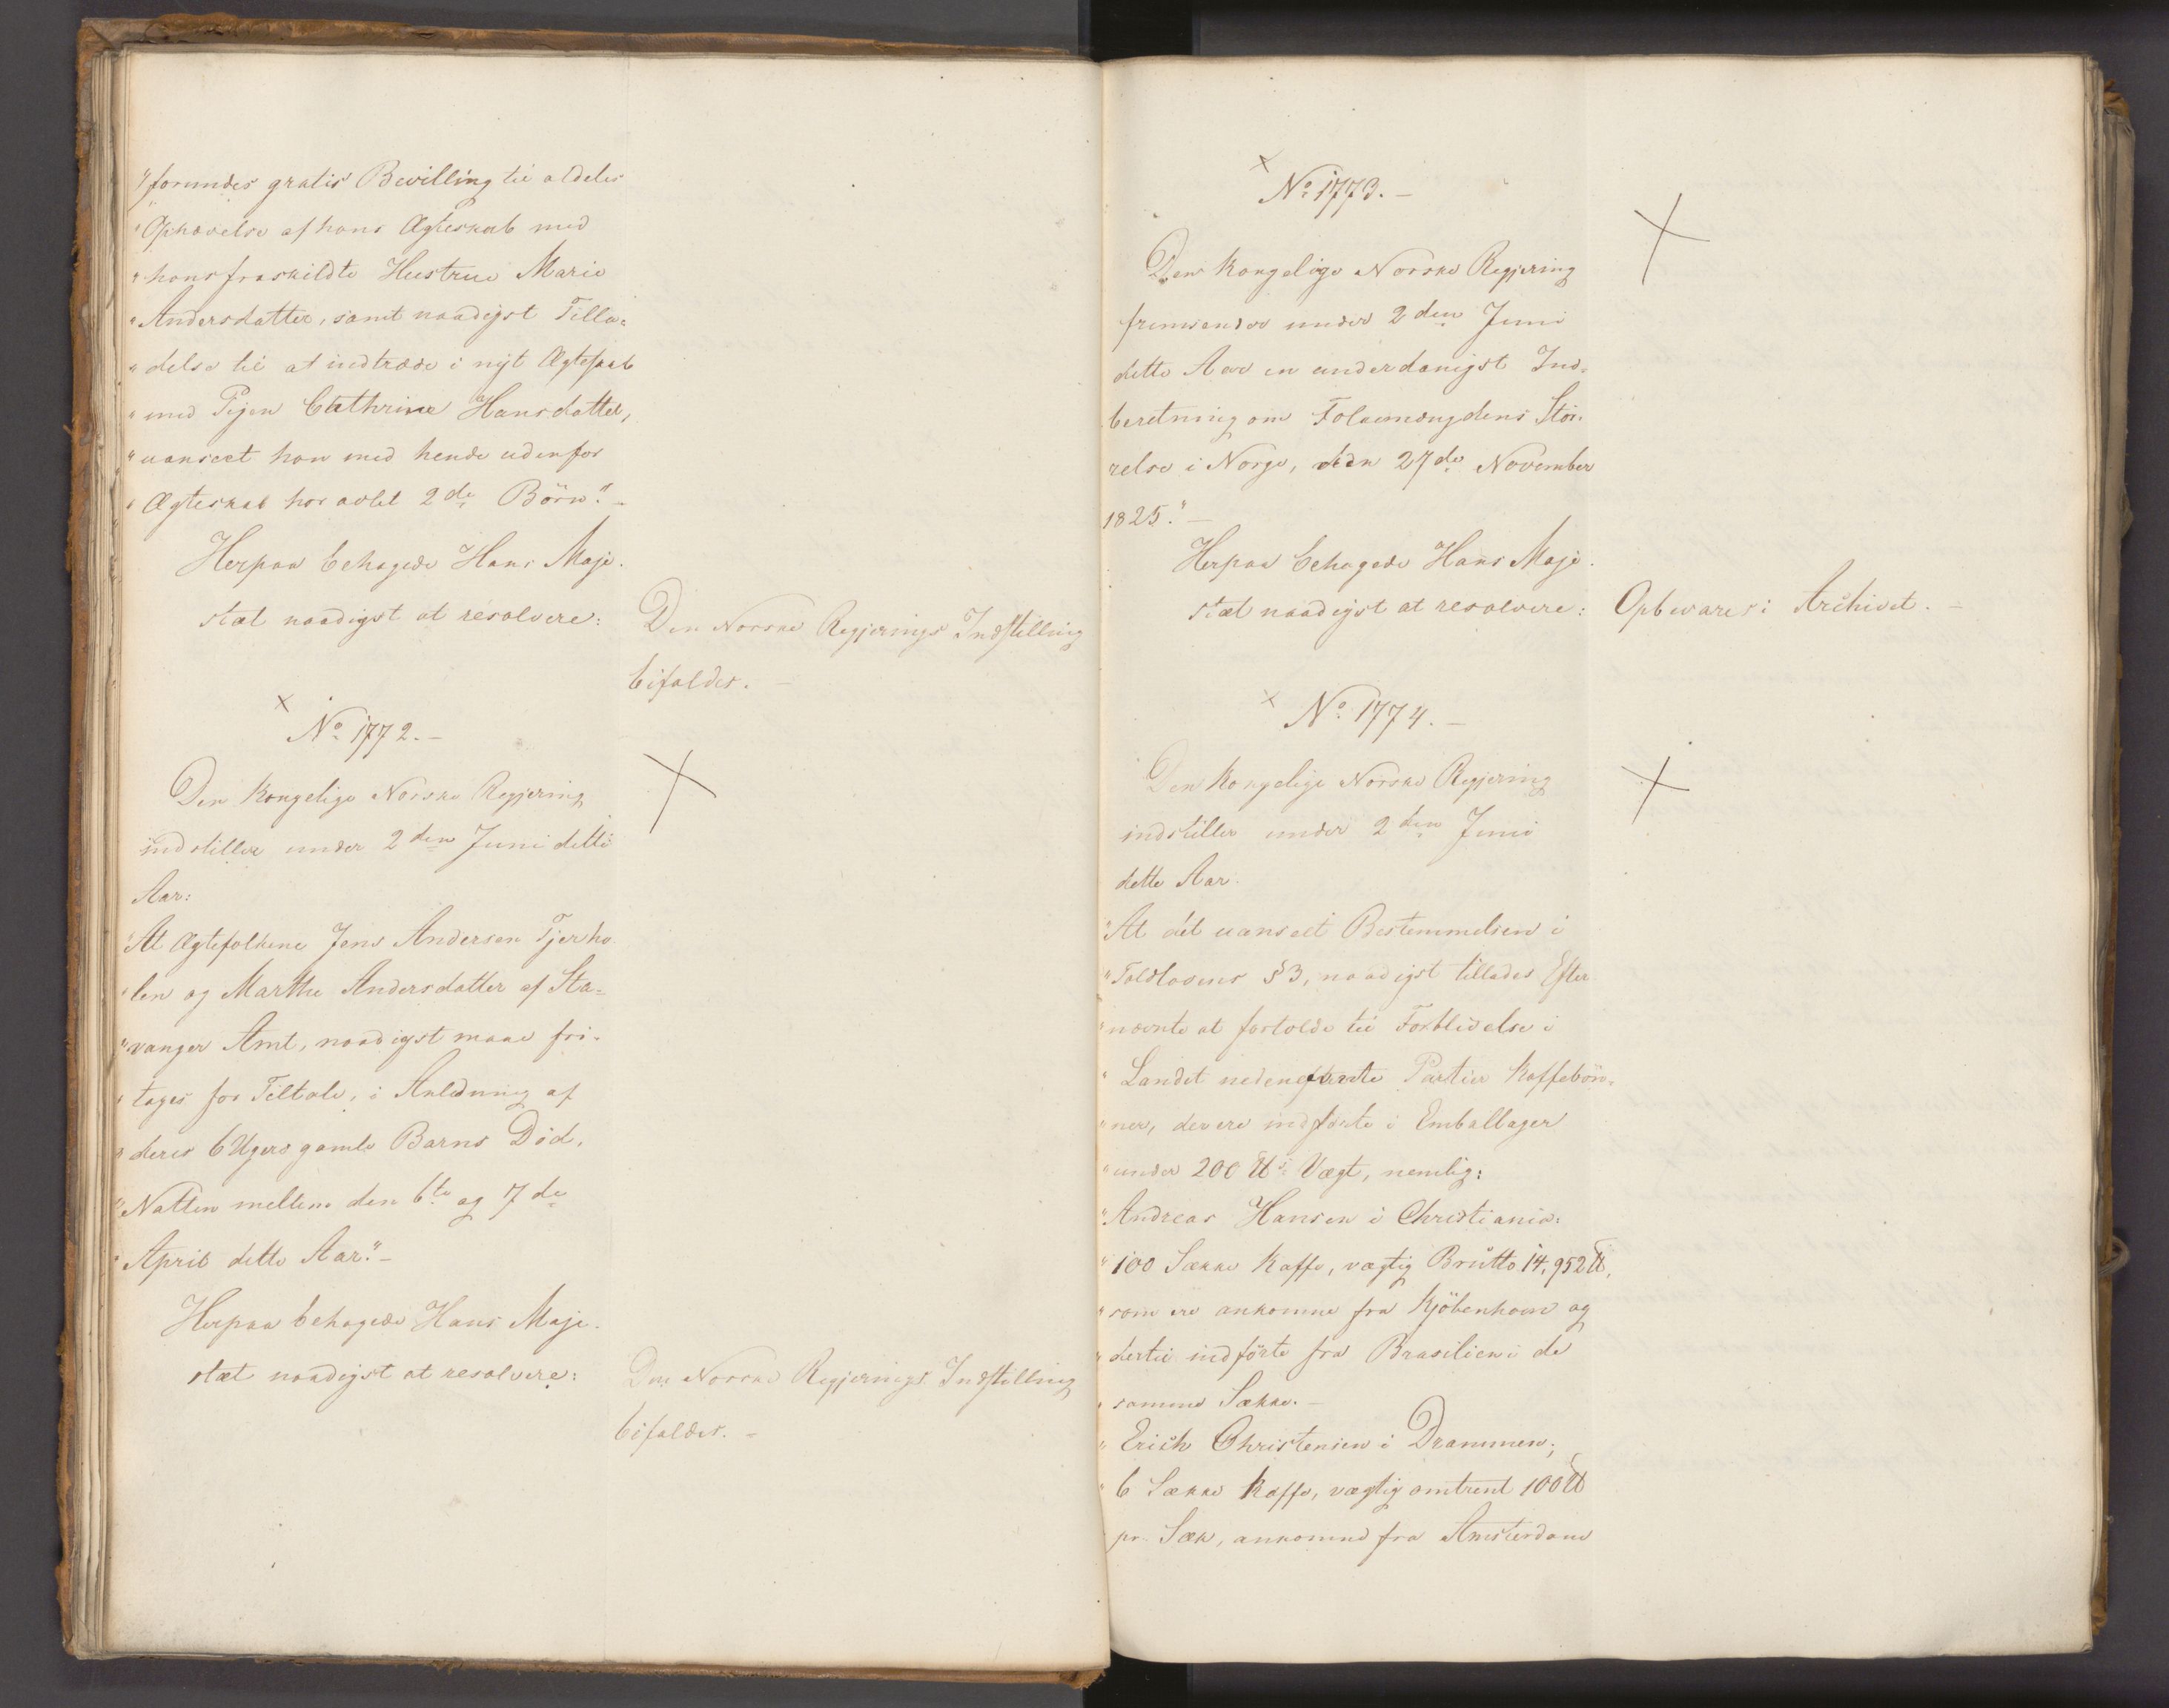 "forundes gratis Bevilling til aldeles
"Ophævelse af hans Ægteskab med
"hans fraskildte Hustrue Marie
"Andersdatter, samt naadigst Tilla-
"delse til at indtræde i nyt Ægteskab
"med Pigen Cathrine Hansdatter,
"uanseet han med hende udenfor
"Ægteskab har avlet 2de Börn." -
Herpaa behagede Hans Maje-
stæt naadigst at resolvere:
Den Norske Regjerings Indstilling
bifaldes. -
No 1772. -
Den Kongelige Norske Regjering
indstiller under 2den Juni dette
Aar:
"At Ægtefolkene Jens Andersen Tjerho-
"len og Marthe Andersdatter af Sta-
"vanger Amt, naadigst maae fri-
"tages for Tiltale, i Anledning af
"deres 6 Ugers gamle Barns Död,
"Natten mellem den 6te og 7de
"April dette Aar." -
Herpaa behagede Hans Maje-
stæt naadigst at resolvere:
Den Norske Regjerings Indstilling
bifaldes. -
No 1773. -
Den Kongelige Norske Regjering
fremsender under 2den Juni
dette Aar en underdanigst Ind-
beretning om Folkemængdens Stör-
relse i Norge, den 27de November
1825." -
Herpaa behagede Hans Maje-
stæt naadigst at resolvere:
Opbevares i Archivet. -
No 1774. -
Den Kongelige Norske Regjering
indstiller under 2den Juni
dette Aar.
"At det uanseet Bestemmelsen i
"Toldlovens §3, naadigst tillades Efter-
"nævnte at fortolde til Forblivelse i
"Landet nedennævnte Partier Kaffebön-
"ner, der ere indförte i Emballager
"under 200 ℔s Vægt, nemlig:
"Andreas Hansen i Christiania:
"100 Sække Kaffe, vægtig Brutto 14,952 ℔,
"som ere ankomne fra Kjöbenhavn og
"dertil indförte fra Brasilien i de
"samme Sække. -
"Erich Christensen i Drammen;
"6 Sække Kaffe, vægtig omtrent 100 ℔
pr. Sæk, ankomne fra Amsterdam